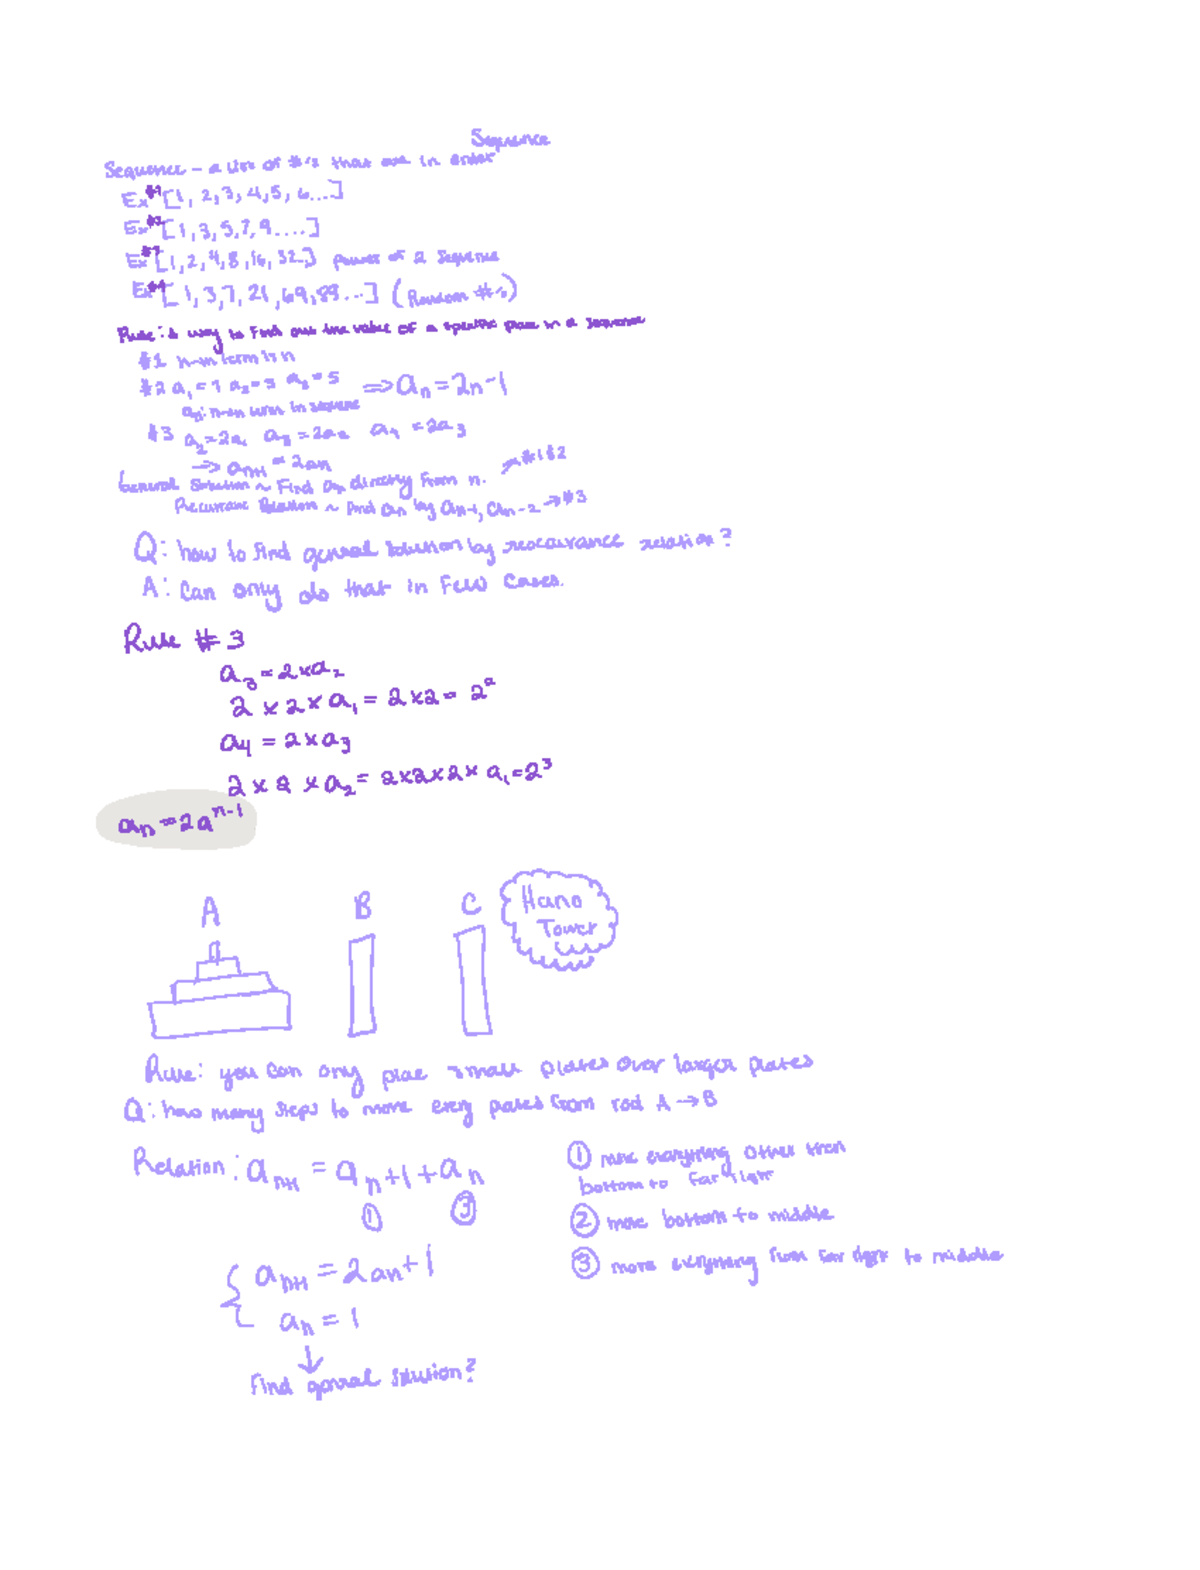 Sequence
Sequence - a list of #'s that are in order
Ex#1 [1, 2, 3, 4, 5, 6...]
Ex#2 [1, 3, 5, 7, 9....]
Ex#3 [1, 2, 4, 8, 16, 32..] power of 2 sequence
Ex#4 [1, 3, 7, 21, 69, 89...] (Random #'s)
Rule: A way to find out the value of a specific place in a sequence
#1 n-th term is n
#2 a₁ = 1 a₂ = 3 a₃ = 5 ⇒ aₙ = 2n-1
aₙ: n-th term in sequence
#3 a₂=2a₁ a₃ = 2a₂ a₄ = 2a₃
⇒ aₙ₊₁ = 2aₙ
General Solution ~ Find aₙ directly from n. → #1&2
Recurrance Relation ~ Find aₙ by aₙ₋₁, aₙ₋₂ → #3
Q: how to find general solution by reocurrance relation?
A: Can only do that in Few Cases.
Rule #3
a₃ = 2×a₂
2 × 2 × a₁ = 2×2 = 2²
a₄ = 2×a₃
2 × 2 × a₂ = 2×2×2× a₁ = 2³
aₙ = 2aⁿ⁻¹
A B C Hano
Tower
Rule: you can only place small plates over larger plates
Q: how many steps to move every plates from rod A → B
Relation: aₙ₊₁ = aₙ+1+aₙ
① ③
① move everything other then
bottom to far right
② move bottom to middle
③ move everything from far right to middle
{ aₙ₊₁ = 2aₙ+1
aₙ = 1
↓
Find general solution?